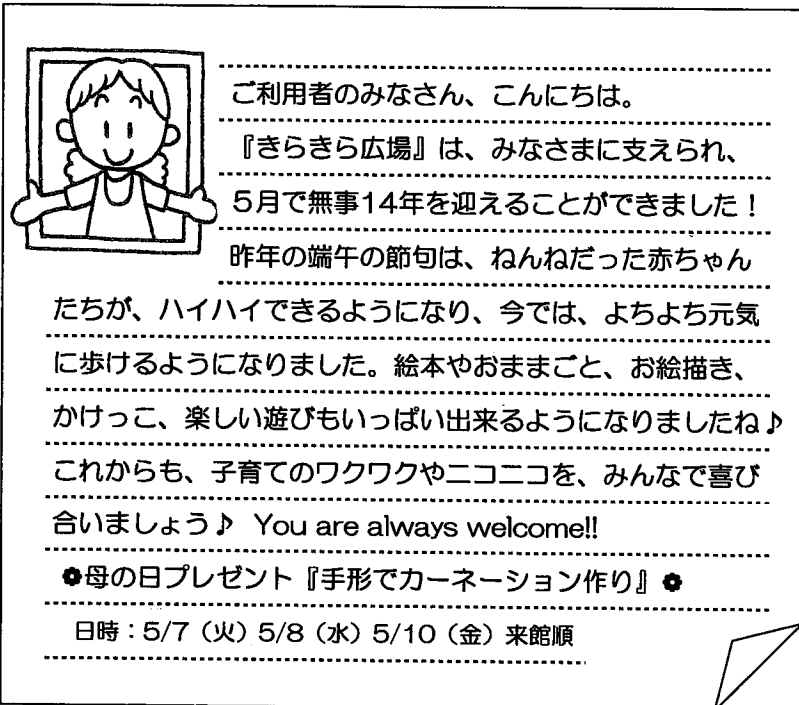 ご利用者のみなさん、こんにちは。
『きらきら広場』は、みなさまに支えられ、
5月で無事14年を迎えることができました！
昨年の端午の節句は、ねんねだった赤ちゃん
たちが、ハイハイできるようになり、今では、よちよち元気
に歩けるようになりました。絵本やおままごと、お絵描き、
かけっこ、楽しい遊びもいっぱい出来るようになりましたね♪
これからも、子育てのワクワクやニコニコを、みんなで喜び
合いましょう♪ You are always welcome!!
✿母の日プレゼント『手形でカーネーション作り』✿
日時：5/7（火）5/8（水）5/10（金）来館順